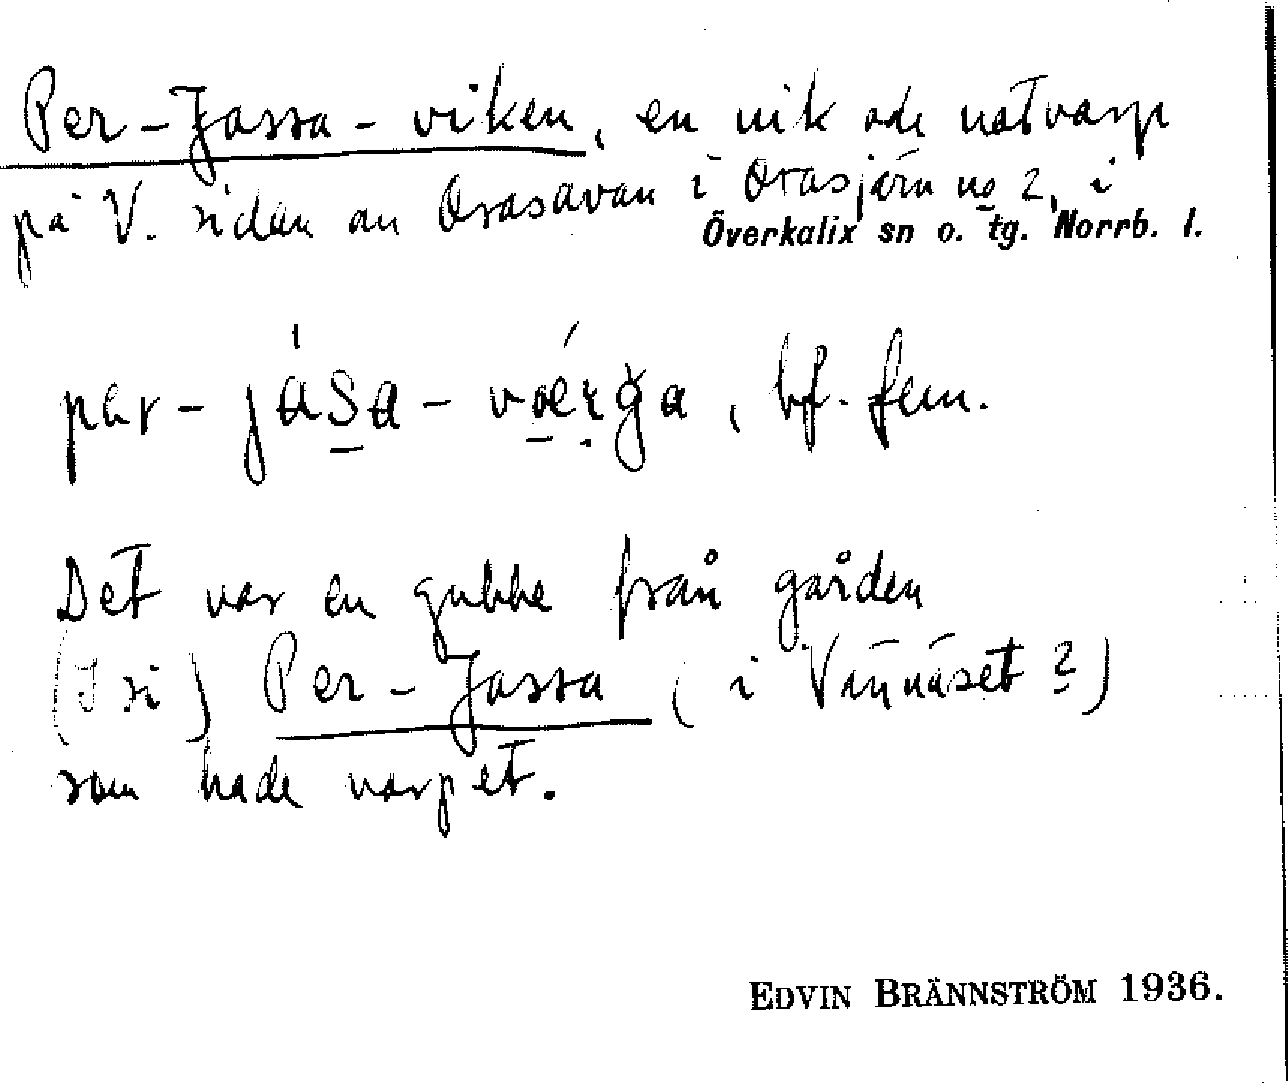 Per-Jassa-viken, en vik och notvarp
på V. sidan av Orasavan i Orasjärv no 2, i
Överkalix sn o. tg. Norrb. l.
per-jása-vǽrga, bf. fem.
Det var en gubbe från gården
( si) Per-Jassa (i Vännäset?)
som hade varpet.
EDVIN BRÄNNSTRÖM 1936.